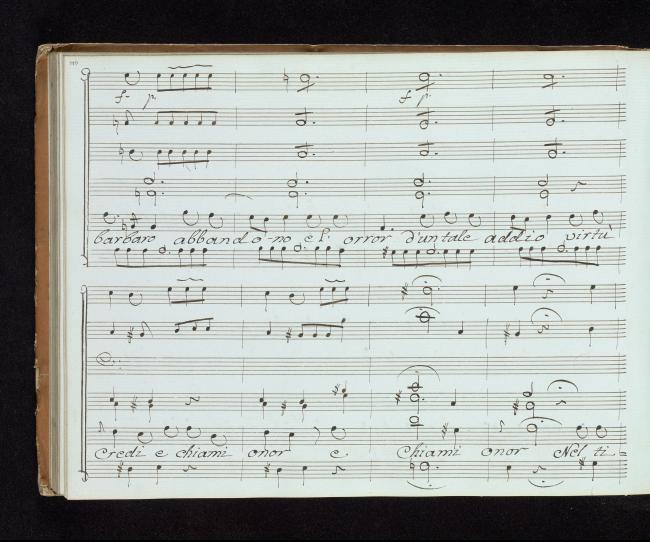 f. p. f p.
barbaro abband o no e l' orror d'un tale addio virtù
Credi e chiami onor e Chiami onor Nel ti=